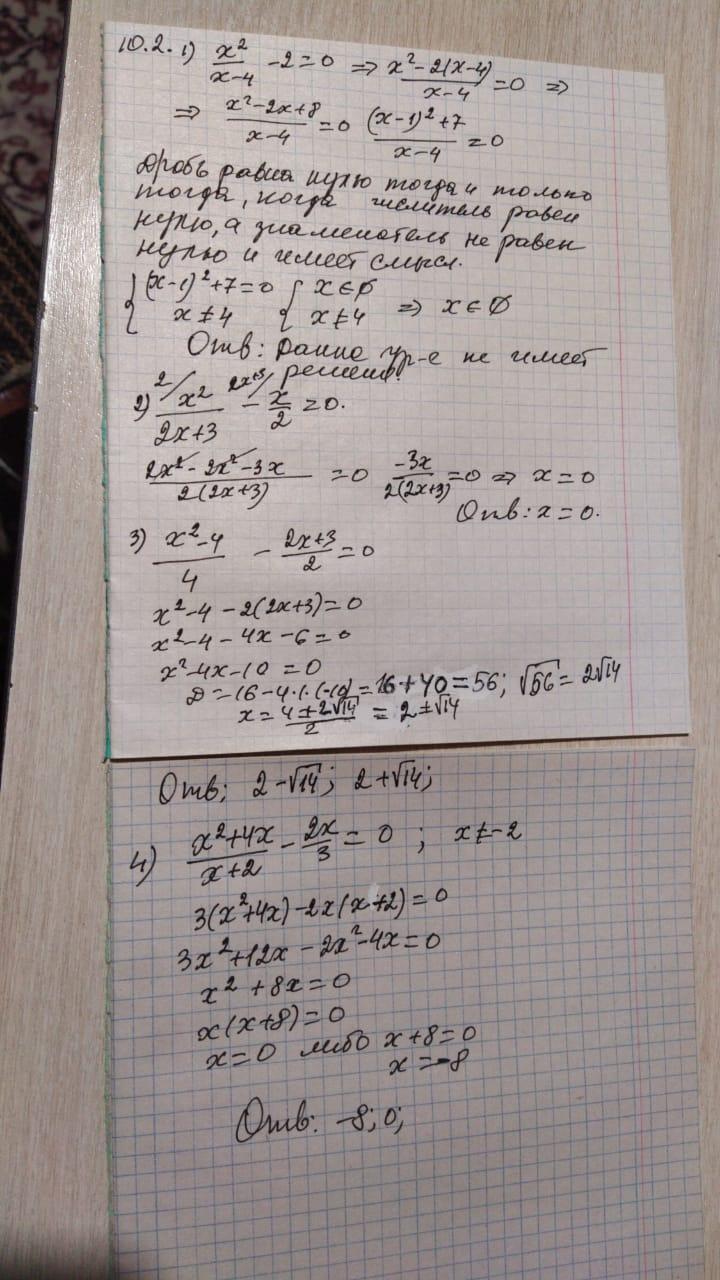 10.2. 1) x²/(x-4) - 2=0 ⇒ (x²-2(x-4))/(x-4) =0 ⇒
⇒ (x²-2x+8)/(x-4) =0 ((x-1)²+7)/(x-4) =0
Дробь равна нулю тогда и только
тогда, когда числитель равен
нулю, а знаменатель не равен
нулю и имеет смысл.
{ (x-1)²+7=0 { x∈∅
x≠4 x≠4 ⇒ x∈∅
Отв: Данно ур-е не имеет
решений.
2) 2/ x²/(2x+3) - 2x+3/ x/2 =0.
(2x²-2x²-3x)/(2(2x+3)) =0 -3x/(2(2x+3)) =0 ⇒ x=0
Отв: x=0.
3) (x²-4)/4 - (2x+3)/2 =0
x²-4-2(2x+3)=0
x²-4-4x-6=0
x²-4x-10=0
D=16-4·1·(-10)=16+40=56; √56=2√14
x=(4±2√14)/2 = 2±√14
Отв: 2-√14; 2+√14;
4) (x²+4x)/(x+2) - 2x/3 =0; x≠-2
3(x²+4x)-2x(x+2)=0
3x²+12x-2x²-4x=0
x²+8x=0
x(x+8)=0
x=0 либо x+8=0
x=-8
Отв: -8; 0;